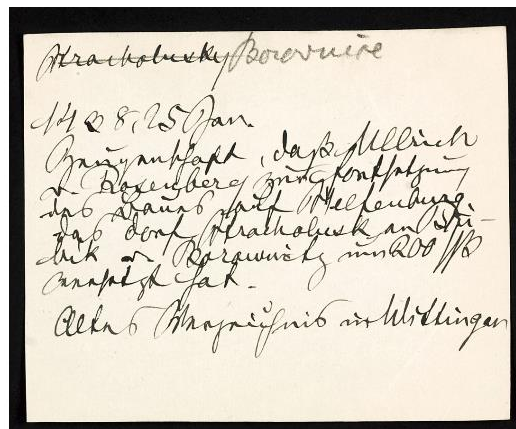 Stracholusky Borovnice
1428, 25 Jan.
Zeugenschaft, daß Ullrich
v. Rosenberg zur Fortsetzung
des Baues auf Helfenburg
das Dorf Stracholusk an
v. Borownitz um 200 ßß
versetzt hat.
Altes Verzeichnis in Wittingau